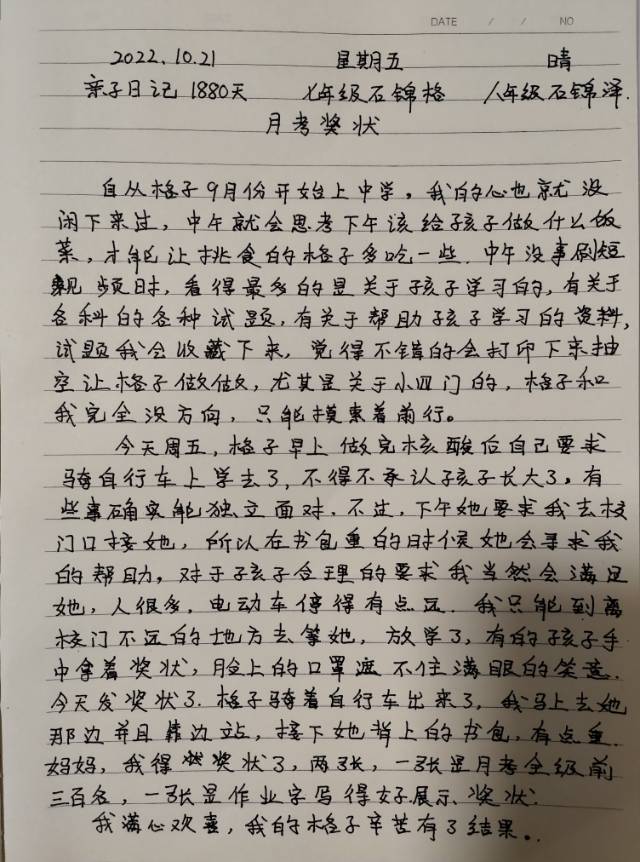 DATE / / NO
2022.10.21 星期五 晴
亲子日记1880天 七年级石锦格 八年级石锦泽.
月考奖状
自从格子9月份开始上中学，我的心也就没
闲下来过，中午就会思考下午该给孩子做什么饭
菜，才能让挑食的格子多吃一些.中午没事刷短
视频时，看得最多的是关于孩子学习的，有关于
各科的各种试题，有关于帮助孩子学习的资料，
试题我会收藏下来，觉得不错的会打印下来抽
空让格子做做，尤其是关于小四门的，格子和
我完全没方向，只能摸索着前行。
今天周五，格子早上做完核酸后自己要求
骑自行车上学去了，不得不承认孩子长大了，有
些事确实能独立面对.不过，下午她要求我去校
门口接她，所以在书包重的时候她会寻求我
的帮助，对于孩子合理的要求我当然会满足
她，人很多，电动车停得有点远.我只能到离
校门不远的地方去等她，放学了，有的孩子手
中拿着奖状，脸上的口罩遮不住满眼的笑意.
今天发奖状了.格子骑着自行车出来了，我马上去她
那边并且靠边站，接下她背上的书包，有点重.
妈妈，我得奖状了，两张，一张是月考全级前
三百名，一张是作业字写得好展示奖状.
我满心欢喜，我的格子辛苦有了结果。.